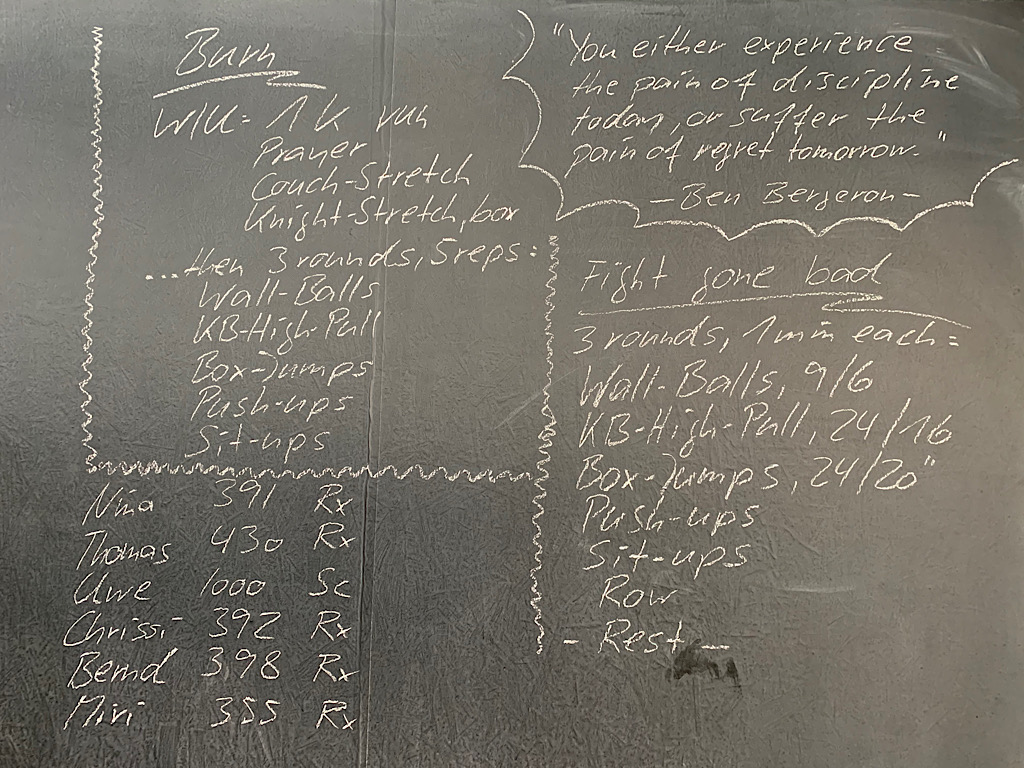 Burn
W/U: 1K run
Prayer
Couch-Stretch
Knight-Stretch, box
...then 3 rounds, 5 reps:
Wall-Balls
KB-High-Pull
Box-Jumps
Push-ups
Sit-ups
Nina 391 Rx
Thomas 430 Rx
Uwe 1000 Sc
Chrissi 392 Rx
Bernd 398 Rx
Mivi 355 Rx
"You either experience
the pain of discipline
today, or suffer the
pain of regret tomorrow."
- Ben Bergeron -
Fight gone bad
3 rounds, 1 min each:
Wall-Balls, 9/6
KB-High-Pull, 24/16
Box-Jumps, 24/20"
Push-ups
Sit-ups
Row
- Rest -